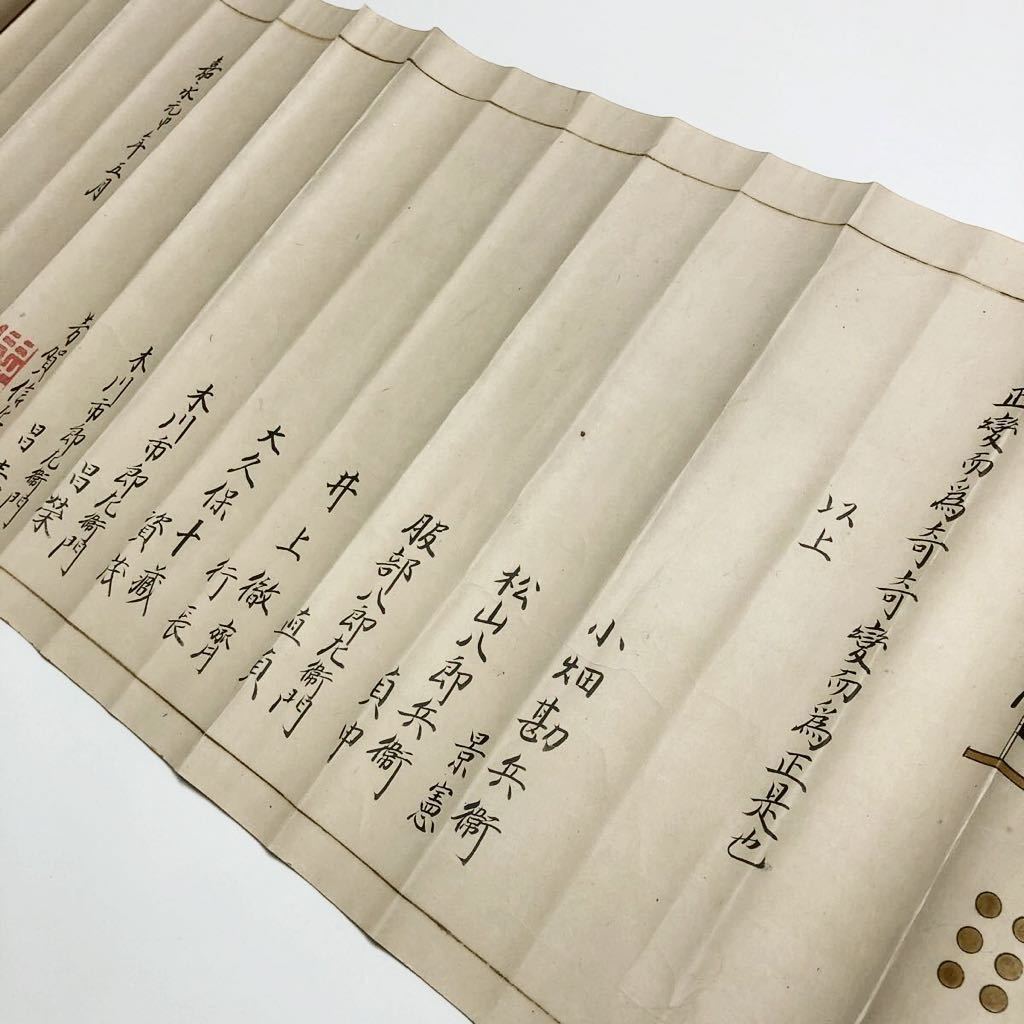 正變而為奇奇變而為正是也
以上
小畑勘兵衛
景憲
松山八郎兵衛
貞申
服部八郎左衛門
直貞
井上徹齊
行長
大久保十藏
資茂
木川市郎左衛門
昌榮
木川市郎左衛門
昌
芳賀信
嘉永元申年五月